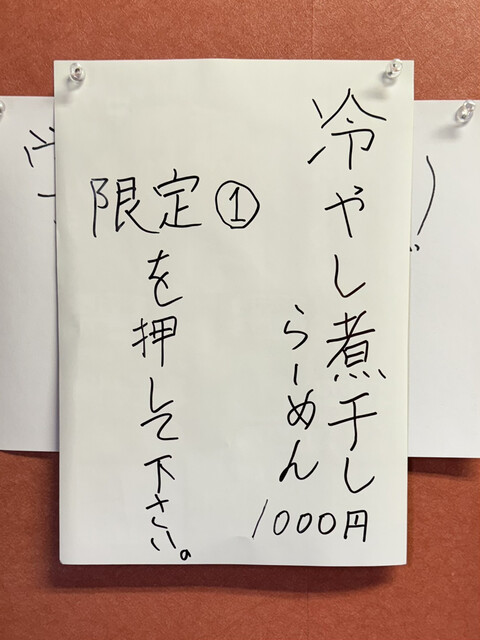 冷やし煮干し
らーめん
1000円
限定①
を押して下さい。